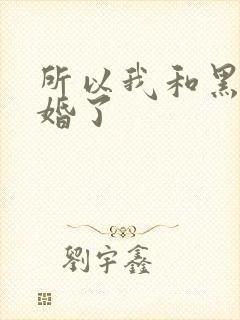 所以我和黑
婚了
劉宇鑫